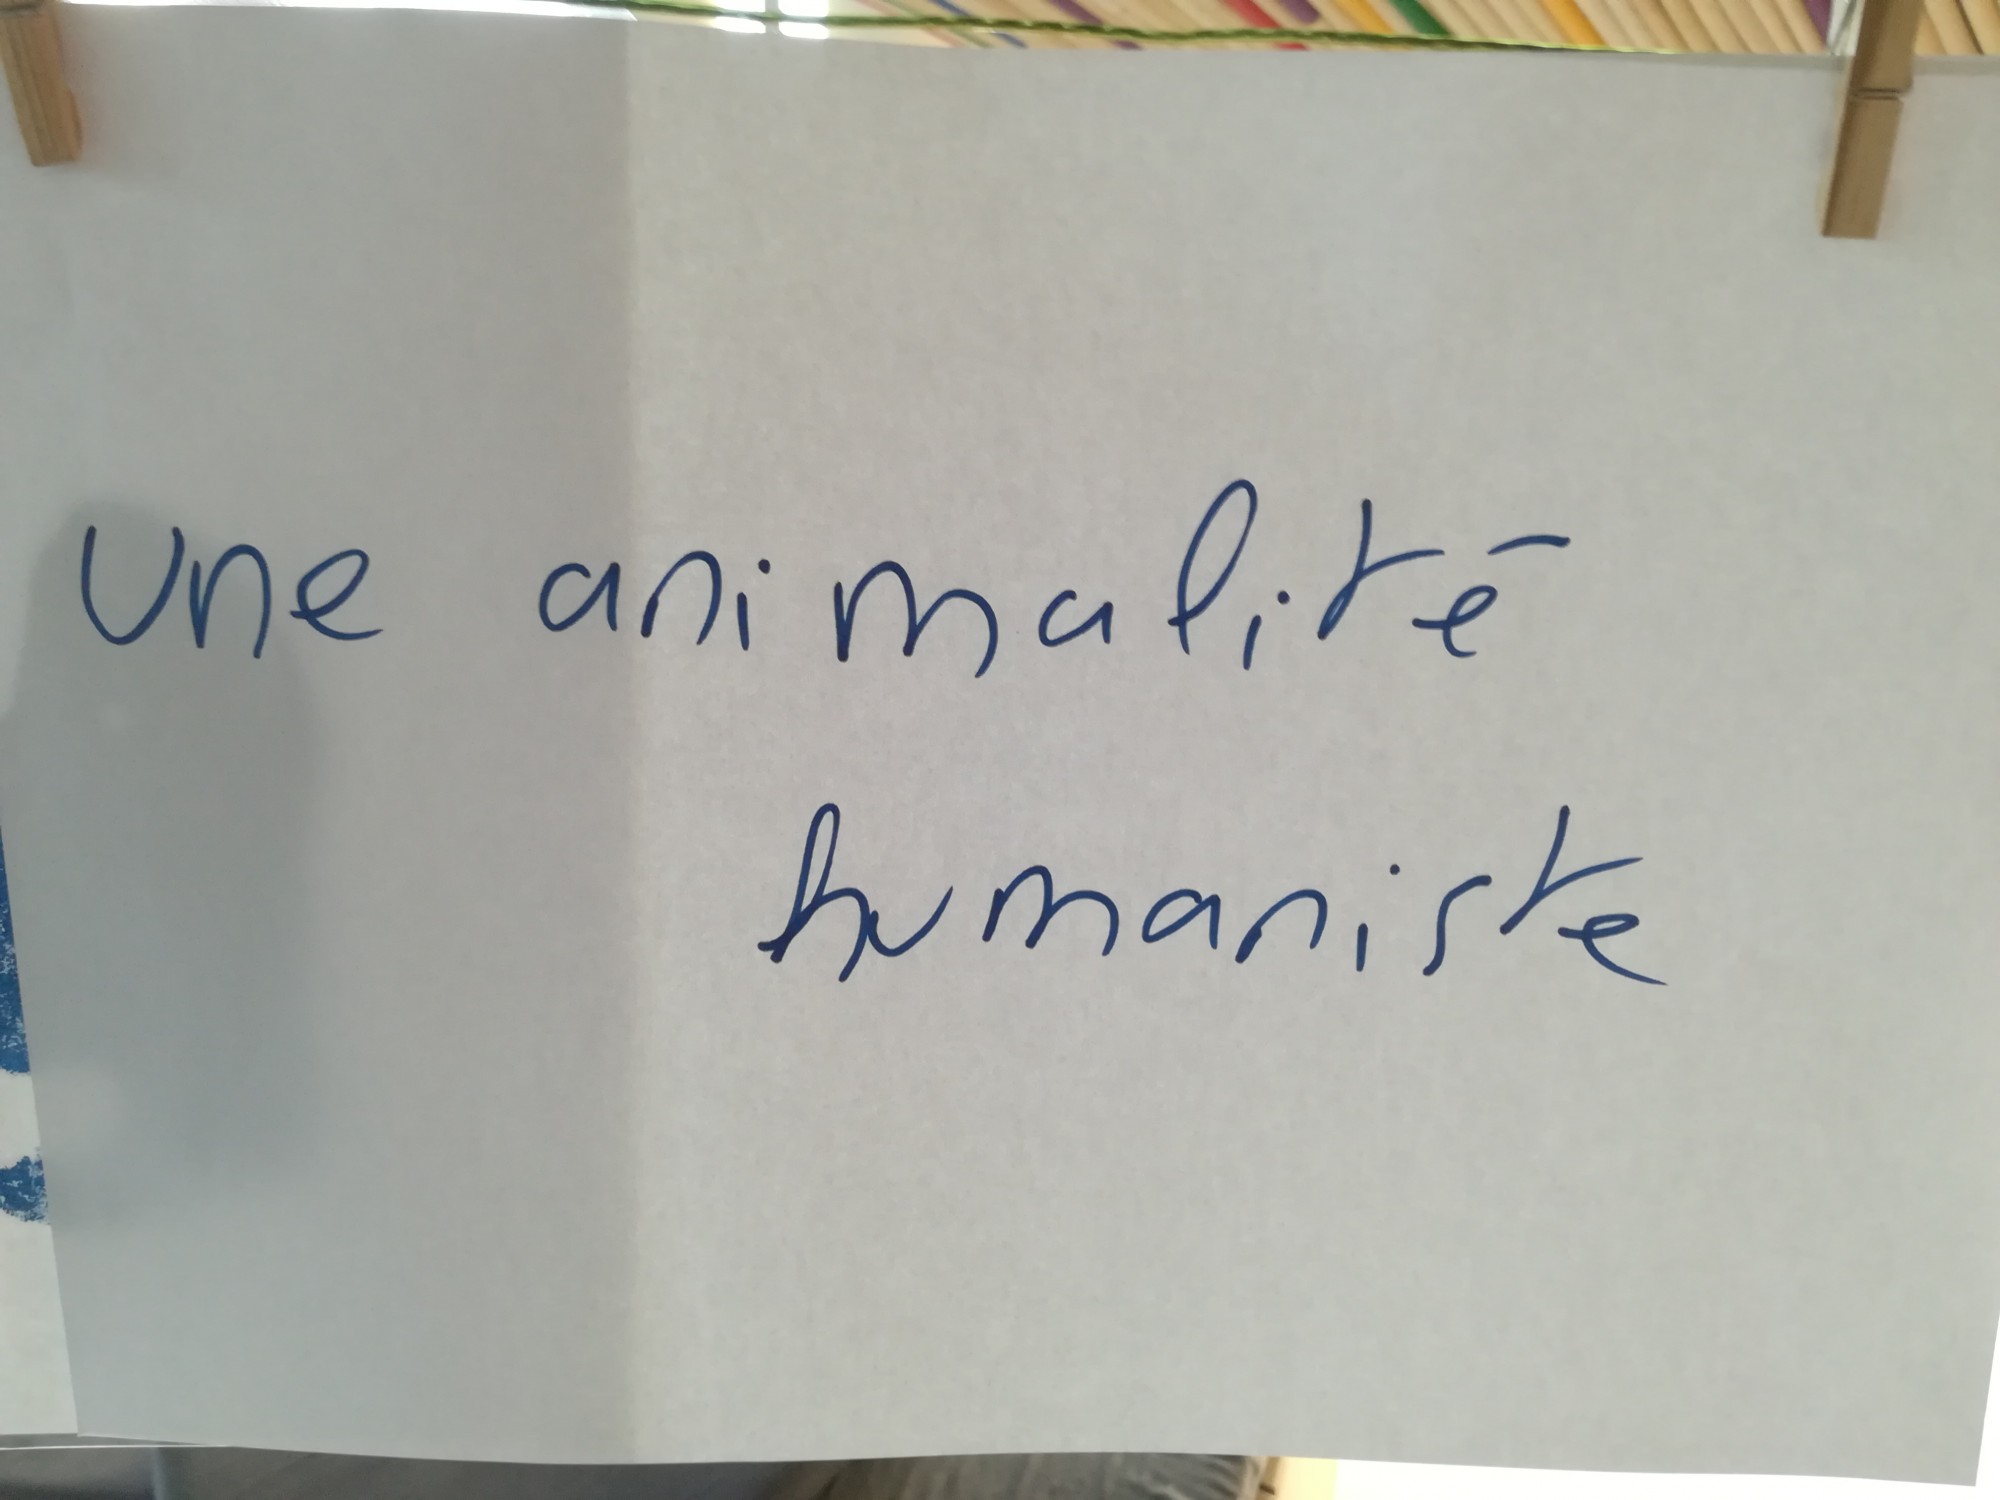 une animalité
humaniste